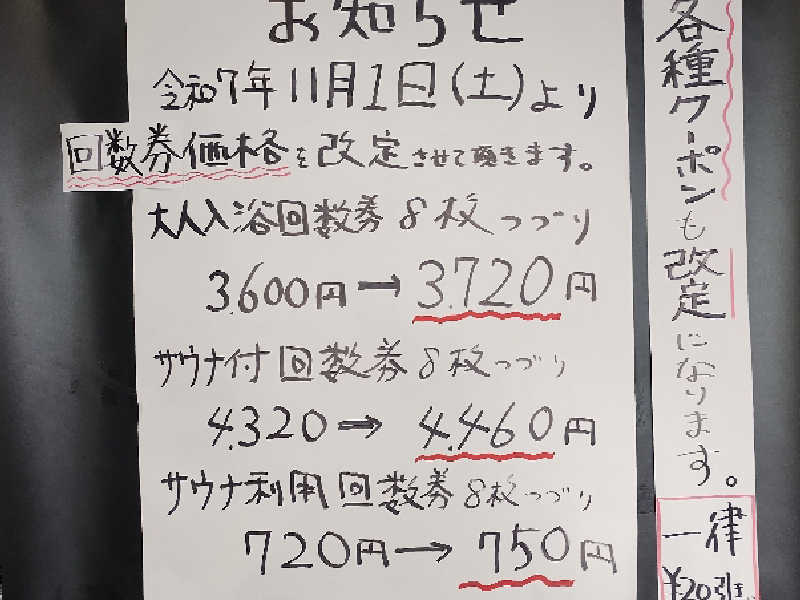 お知らせ
令和7年11月1日(土)より
回数券価格を改定させて頂きます。
大人入浴回数券8枚つづり
3.600円→3.720円
サウナ付回数券8枚つづり
4.320→4.460円
サウナ利用回数券8枚つづり
720円→750円
各種クーポンも改定になります。
一律
¥20引き